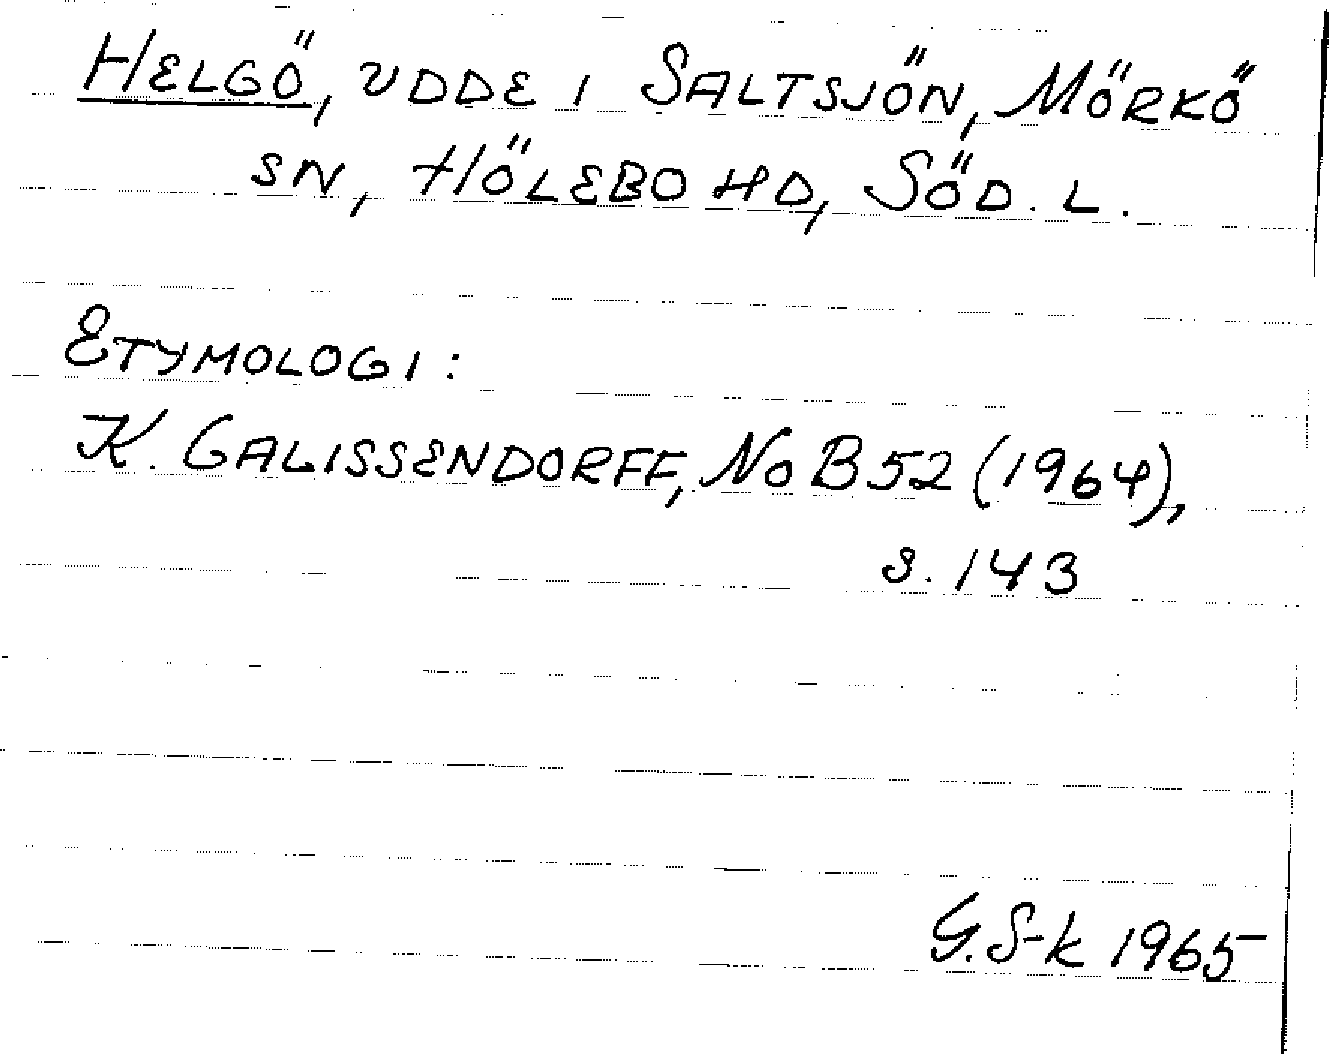 HELGÖ, UDDE I SALTSJÖN, MÖRKÖ
SN, HÖLEBO HD, SÖD. L.
ETYMOLOGI:
K. GALISSENDORFF, NoB 52 (1964),
s. 143
G. S-k 1965